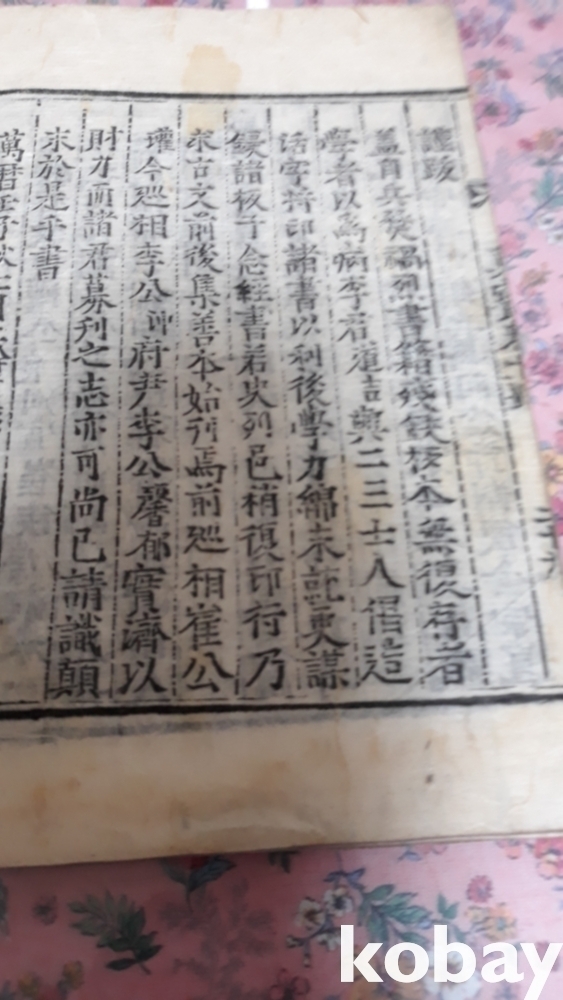 謹跋
蓋自兵燹禍烈書籍殘缺板本無復存者
學者以爲病李君道吉與二三士人倡造
活字将印諸書以利後學力綿未訖更謀
鋟諸板予念經書若史列邑稍復印行乃
求古文前後集善本始刊焉前廵相崔公
瓘今廵相李公 府尹李公馨郁實濟以
財力而諸君募刊之志亦可尚已請識顛
末於是乎書
萬曆
kobay